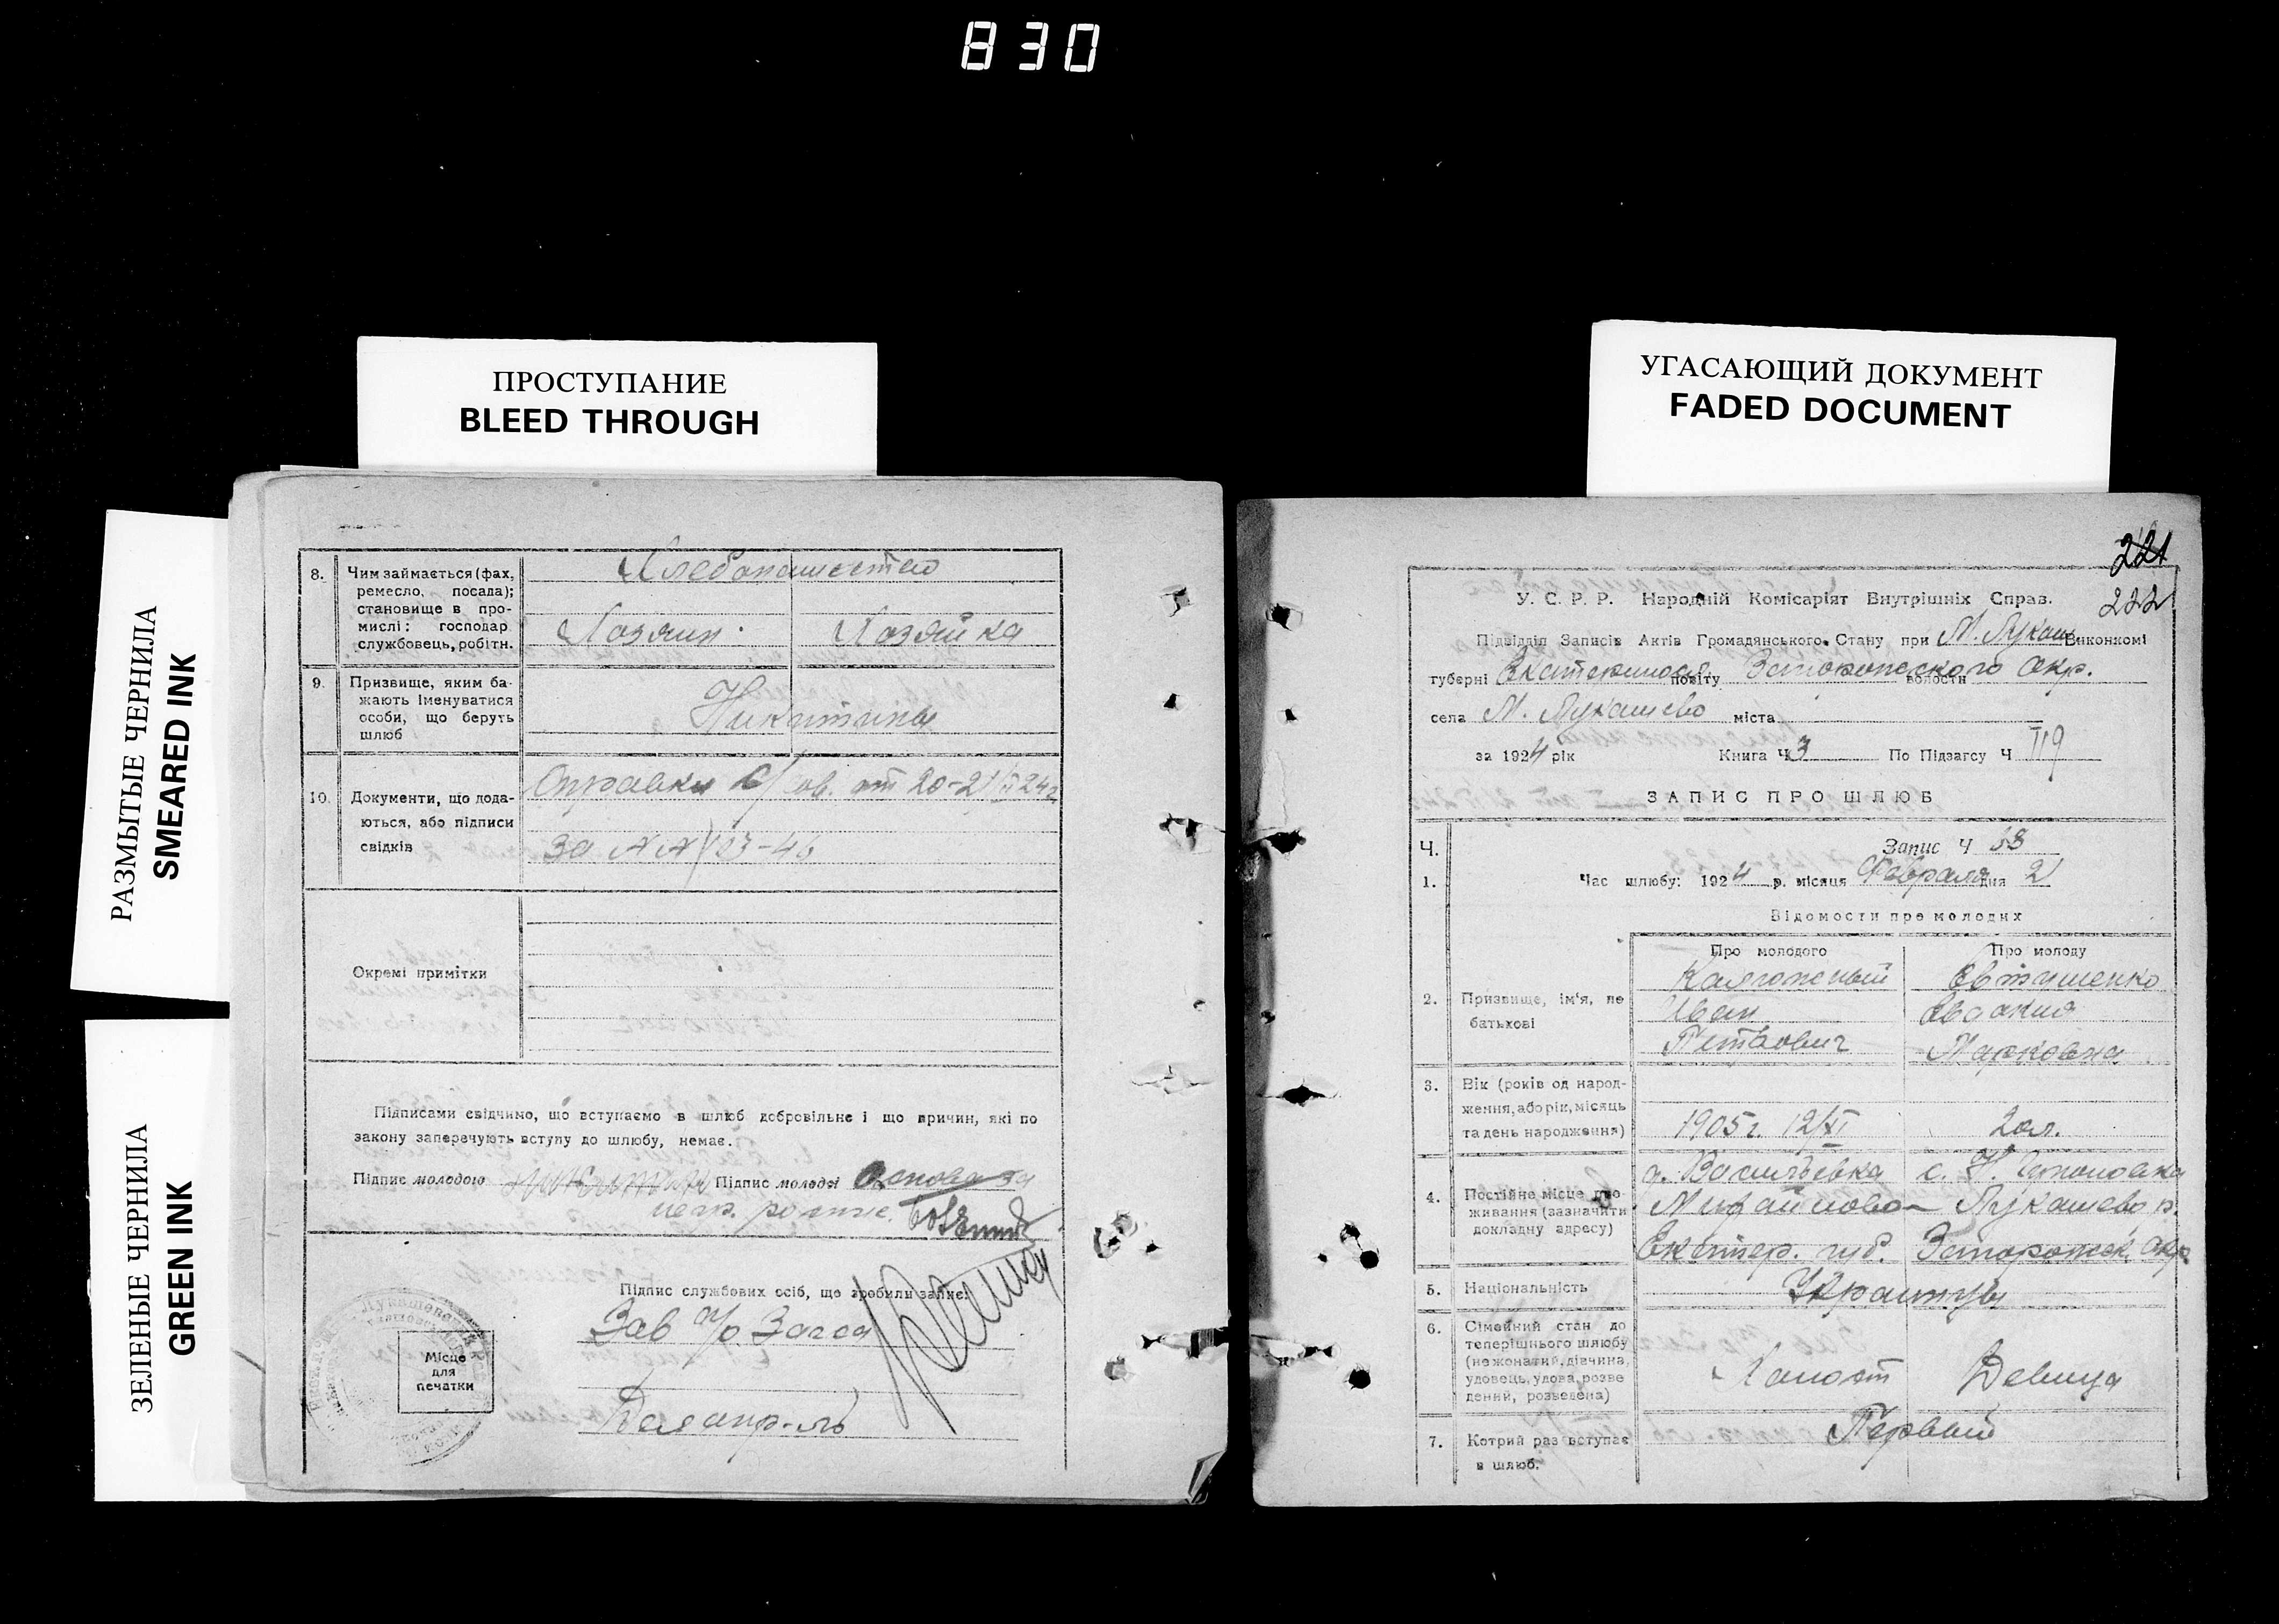 830
ПРОСТУПАНИЕ
BLEED THROUGH
УГАСАЮЩИЙ ДОКУМЕНТ
FADED DOCUMENT
РАЗМЫТЫЕ ЧЕРНИЛА
SMEARED INK
ЗЕЛЕНЫЕ ЧЕРНИЛА
GREEN INK
8. Чим займається (фах, ремесло, посада); становище в промислі: господар службовець, робітн.
Хлебопашество
Хозяин Хозяйка
9. Призвище, яким ба-
жають іменуватися
особи, що беруть
шлюб
Никитины
10. Документи, що дода-
ються, або підписи
свідків
Справки С/сов. от 20-21/II 24 г
за NN 123-46
Окремі примітки
Підписами свідчимо, що вступаємо в шлюб добровільне і що причин, які по
закону заперечують вступу до шлюбу, немає.
Підпис молодою Підпис молодої
Підпис службових осіб, що зробили запис:
Зав п/о Загса
Делопр-ль
Місце
для
печатки
221
222
У. С. Р. Р. Народній Комісаріят Внутрішніх Справ.
Підвідділ Записів Актів Громадянського Стану при М. Лукаш Виконкомі
губерні Екатеринослав повіту Запорожского окр. волости
села М. Лукашево міста
за 1924 рік Книга Ч 3 По Підзагсу Ч 119
ЗАПИС ПРО ШЛЮБ
Ч. Запис Ч 58
1. Час шлюбу: 1924 р. місяця Февраля дня 21
Відомости про молодих
Про молодого Про молоду
2. Призвище, ім'я, по
батькові
Калюжный Евтушенко
Иван Евдокия
Петрович Марковна
3. Вік (років од народ-
ження, або рік, місяць
та день народження)
1905 г. 12/XI 20 л.
4. Постійне місце про-
живання (зазначити
докладну адресу)
д. Васильевка с. Н.
Михайлово- Лукашево р.
Екатер. губ. Запорожск. окр
5. Національність
Украинцы
6. Сімейний стан до
теперішнього шлюбу
(не жонатий, дівчина,
удовець, удова, розве
дений, розведена)
Холост Девица
7. Котрий раз вступає
в шлюб.
Первый